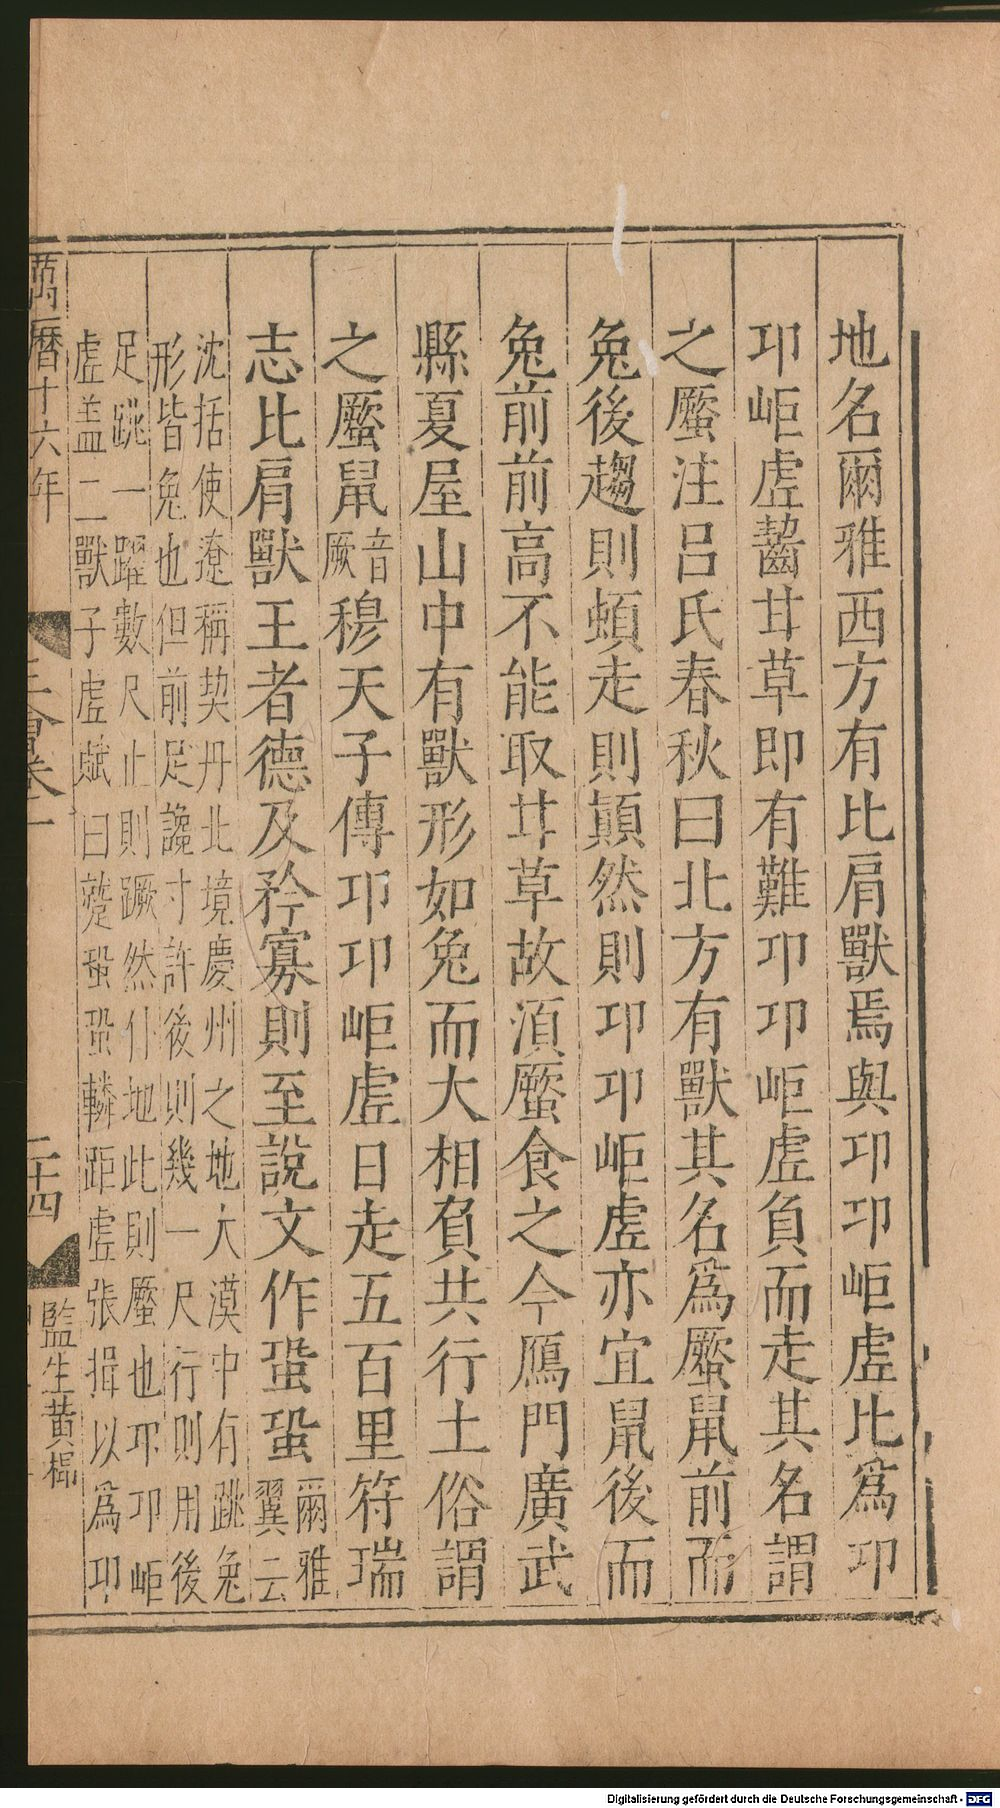 地名爾雅西方有比肩獸焉與卭卭岠虛比爲卭
卭岠虛齧甘草即有難卭卭岠虛負而走其名謂
之蟨注呂氏春秋曰北方有獸其名爲蟨鼠前而
兔後趨則頓走則顛然則卭卭岠虛亦宜鼠後而
兔前前高不能取甘草故須蟨食之今鴈門廣武
縣夏屋山中有獸形如兔而大相負共行土俗謂
之蟨鼠音厥穆天子傳卭卭岠虛日走五百里符瑞
志比肩獸王者德及矜寡則至說文作蛩蛩爾雅翼云
沈括使遼稱契丹北境慶州之地大漠中有跳兔
形皆兔也但前足纔寸許後則幾一尺行則用後
足跳一躍數尺止則蹶然仆地此則蟨也卭卭岠
虛盖二獸子虛賦曰蹵蛩蛩轔距虛張揖以爲卭
萬曆十六年
二十四
監生黃
Digitalisierung gefördert durch die Deutsche Forschungsgemeinschaft - DFG